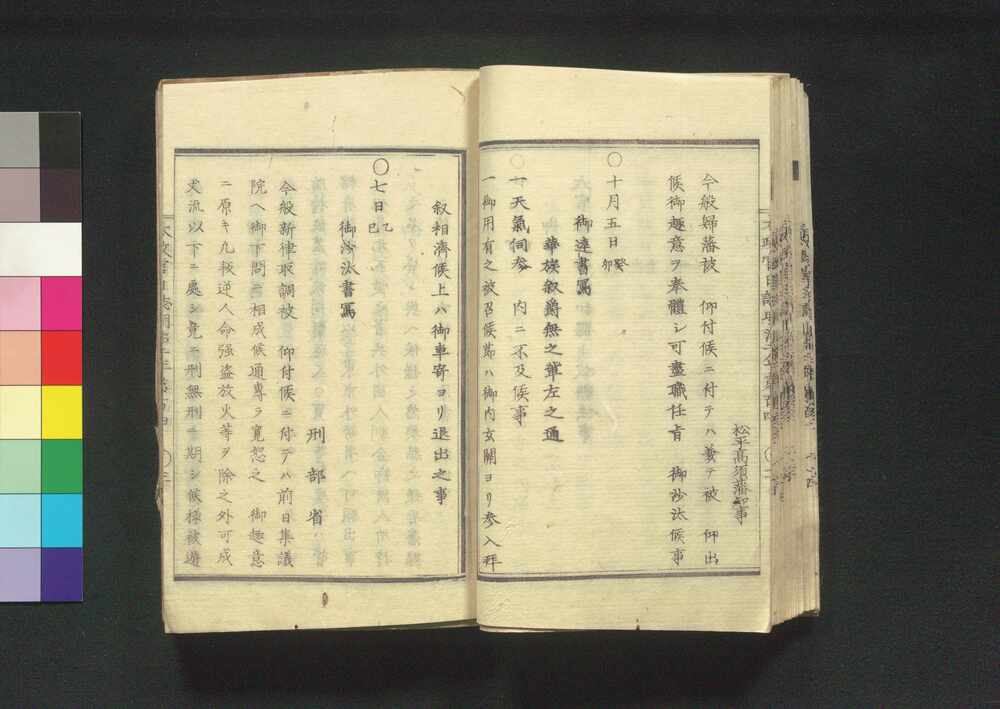 松平高須藩知事
今般歸藩被　仰付候ニ付テハ兼テ被　仰出
候御趣意ヲ奉體シ可盡職任旨　御沙汰候事
○十月五日癸卯
御達書寫
華族叙爵無之輩左之通
一天氣伺参　内ニ不及候事
一御用有之被召候節ハ御内玄關ヨリ参入拜
叙相濟候上ハ御車寄ヨリ退出之事
○七日乙巳
御沙汰書寫
刑部省
今般新律取調被　仰付候ニ付テハ前日集議
院ヘ御下問ニ相成候通專ラ寛恕之　御趣意
ニ原キ八逆人命强盗放火等ヲ除之外可成
丈流以下ニ處シ竟ニ刑無刑ニ期シ候樣被遊